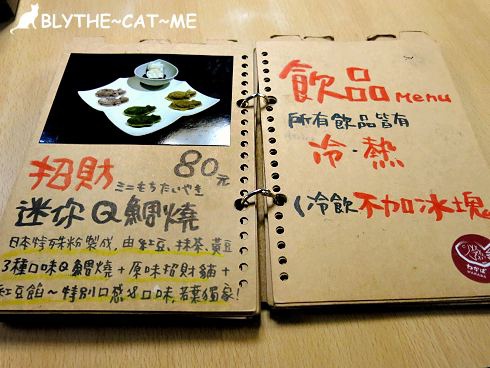 BLYTHE~CAT~ME
招財
80元
ミニもちたいやき
迷你Q鯛燒
日本特殊粉製成,由紅豆、抹茶、黃豆
3種口味Q鯛燒+原味招財貓+
紅豆餡~特別口感&口味,若葉獨家!
飲品Menu
所有飲品皆有
冷·熱
(冷飲不加冰塊。
わかば
WAKABA